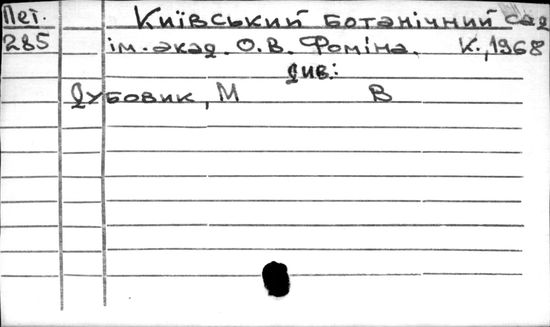 Пет. Київський ботанічний сад
285 ім. акад. О.В. Фоміна. К., 1968
див:
Дубовик, М В